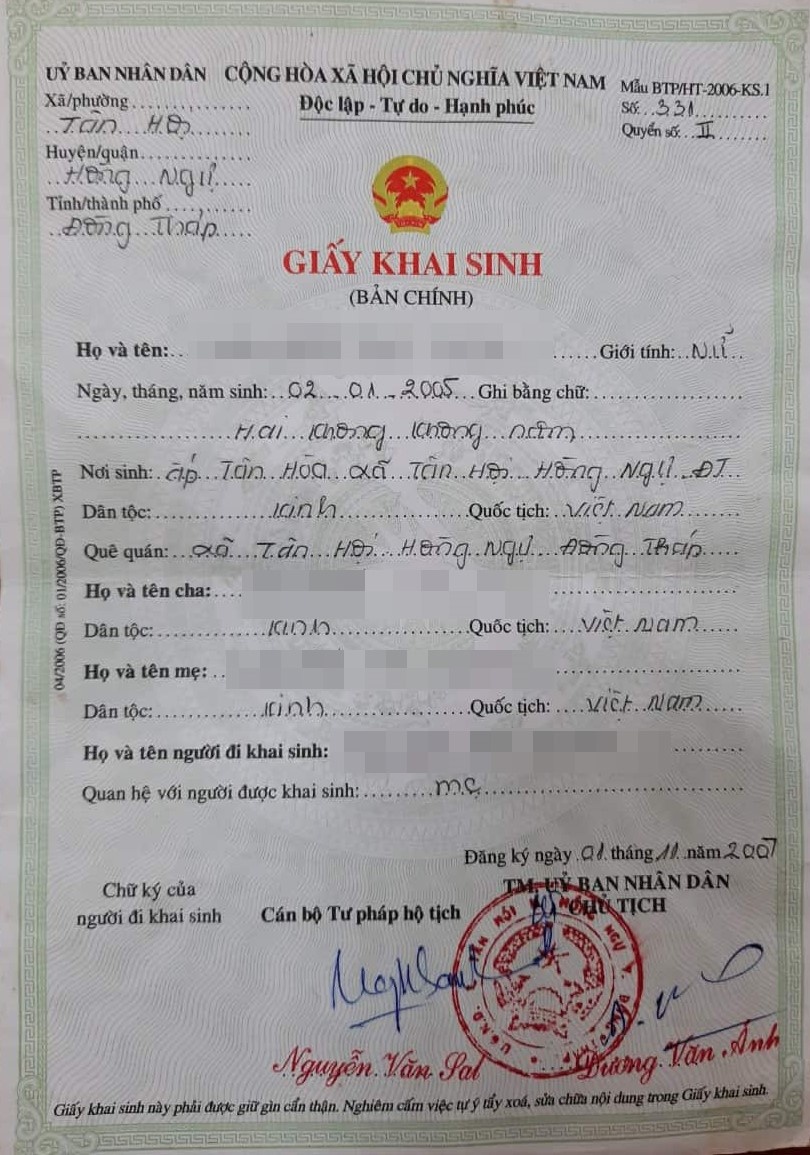 UỶ BAN NHÂN DÂN CỘNG HÒA XÃ HỘI CHỦ NGHĨA VIỆT NAM
Mẫu BTP/HT-2006-KS.1
Xã/phường
Tân Hội
Độc lập - Tự do - Hạnh phúc
Số: 331
Quyển số: II
Huyện/quận
Hồng Ngự
Tỉnh/thành phố
Đồng Tháp
GIẤY KHAI SINH
(BẢN CHÍNH)
Họ và tên: Giới tính: Nữ
Ngày, tháng, năm sinh: 02 - 01 - 2005 Ghi bằng chữ:
Hai không không năm
Nơi sinh: ấp Tân Hòa xã Tân Hội Hồng Ngự ĐT
Dân tộc: kinh Quốc tịch: Việt Nam
Quê quán: xã Tân Hội Hồng Ngự Đồng Tháp
Họ và tên cha:
Dân tộc: kinh Quốc tịch: Việt Nam
Họ và tên mẹ:
Dân tộc: kinh Quốc tịch: Việt Nam
Họ và tên người đi khai sinh:
Quan hệ với người được khai sinh: mẹ
04/2006 (QĐ số: 01/2006/QĐ-BTP) XBTP
Đăng ký ngày 01 tháng 11 năm 2007
Chữ ký của
người đi khai sinh
Cán bộ Tư pháp hộ tịch
TM. UỶ BAN NHÂN DÂN
CHỦ TỊCH
Nguyễn Văn Sal
Dương Văn Ảnh
Giấy khai sinh này phải được giữ gìn cẩn thận. Nghiêm cấm việc tự ý tẩy xoá, sửa chữa nội dung trong Giấy khai sinh.